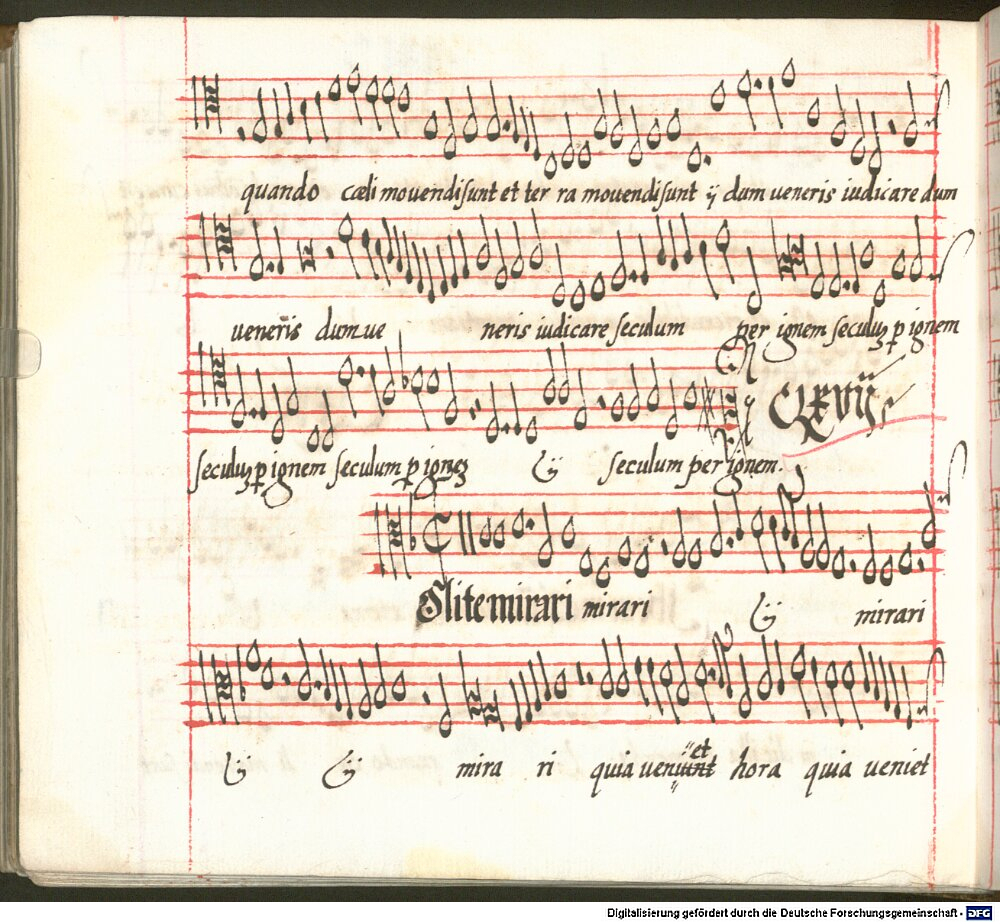 quando cæli movendi sunt et ter ra movendi sunt ij dum veneris iudicare dum
veneris dum ve neris iudicare seculum per ignem seculuȝ p ignem
CLXVII
seculuȝ p ignem seculum p igneȝ ij seculum per ignem.
Olite mirari mirari ij mirari
et
ij ij mira ri quia veniunt hora quia veniet
Digitalisierung gefördert durch die Deutsche Forschungsgemeinschaft - DFG